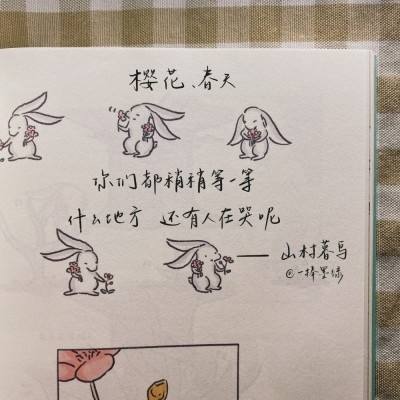 樱花、春天
你们都稍稍等一等
什么地方 还有人在哭呢
——山村暮鸟
@一择墨绿